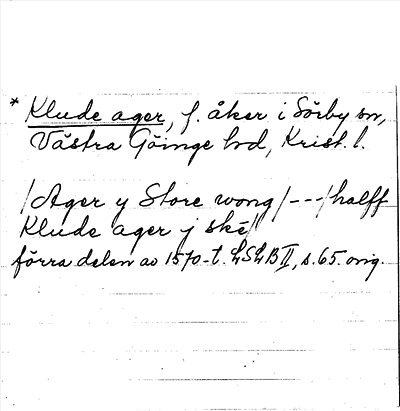 * Klude ager, f. åker i Sörby sn,
Västra Göinge hd, Krist. l.
/Ager y Store wong/---/halff
Klude ager j ske/
förra delen av 1570-t. LSLB II, s. 65. orig.